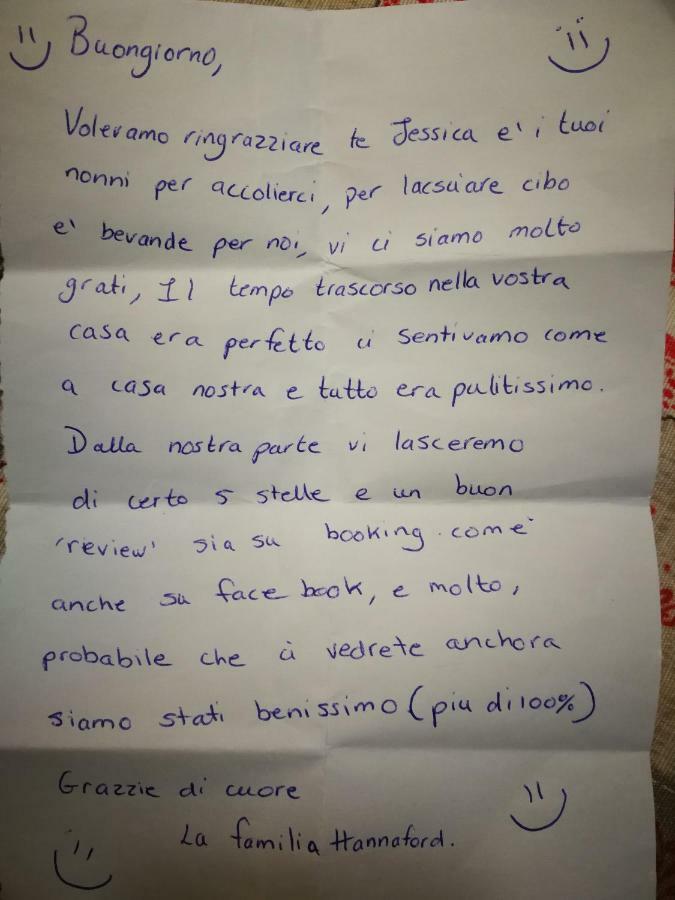 Buongiorno,
Volevamo ringrazziare te Jessica e' i tuoi
nonni per accolierci, per lacsuare cibo
e' bevande per noi, vi ci siamo molto
grati, Il tempo trascorso nella vostra
casa era perfetto ci sentivamo come
a casa nostra e tutto era pulitissimo.
Dalla nostra parte vi lasceremo
di certo 5 stelle e un buon
'review' sia su booking.come
anche su face book, e molto,
probabile che ci vedrete anchora
siamo stati benissimo (piu di 100%)
Grazzie di cuore
La familia Hannaford.